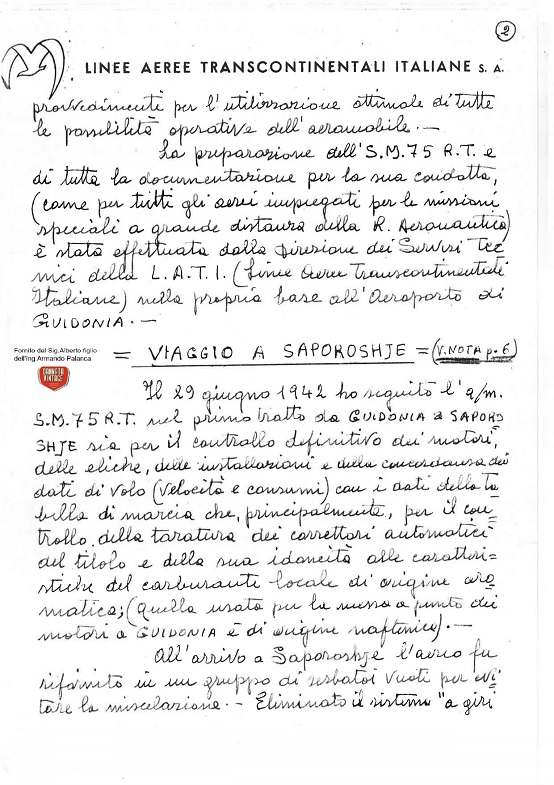 2
LINEE AEREE TRANSCONTINENTALI ITALIANE S. A.
provvedimenti per l'utilizzazione ottimale di tutte
le possibilità operative dell'aeromobile. —
La preparazione dell'S.M.75 R.T. e
di tutta la documentazione per la sua condotta,
(come per tutti gli aerei impiegati per le missioni
speciali a grande distanza della R. Aeronautica)
è stata effettuata dalla Direzione dei Servizi Tec
nici della L.A.T.I. (Linee Aeree Transcontinentali
Italiane) nella propria base all'Aeroporto di
GUIDONIA. —
Fornito dal Sig.Alberto figlio
dell'Ing Armando Palanca
DANNATA
VINTAGE
= VIAGGIO A SAPOROSHJE = (V. NOTA p. 6)
Il 29 giugno 1942 ho seguito l'a/m.
S.M.75 R.T. nel primo tratto da GUIDONIA a SAPORO
SHJE sia per il controllo definitivo dei motori,
delle eliche, delle installazioni e della concordanza dei
dati di volo (velocità e consumi) con i dati della ta
bella di marcia che, principalmente, per il con
trollo della taratura dei correttori automatici
del titolo e della sua idoneità alle caratteri=
stiche del carburante locale di origine aro
matica; (quella usata per la messa a punto dei
motori a GUIDONIA è di origine naftenica). —
All'arrivo a Saporoshje l'aereo fu
rifornito in un gruppo di serbatoi vuoti per evi
tare la miscelazione. — Eliminato il sistema "a giri